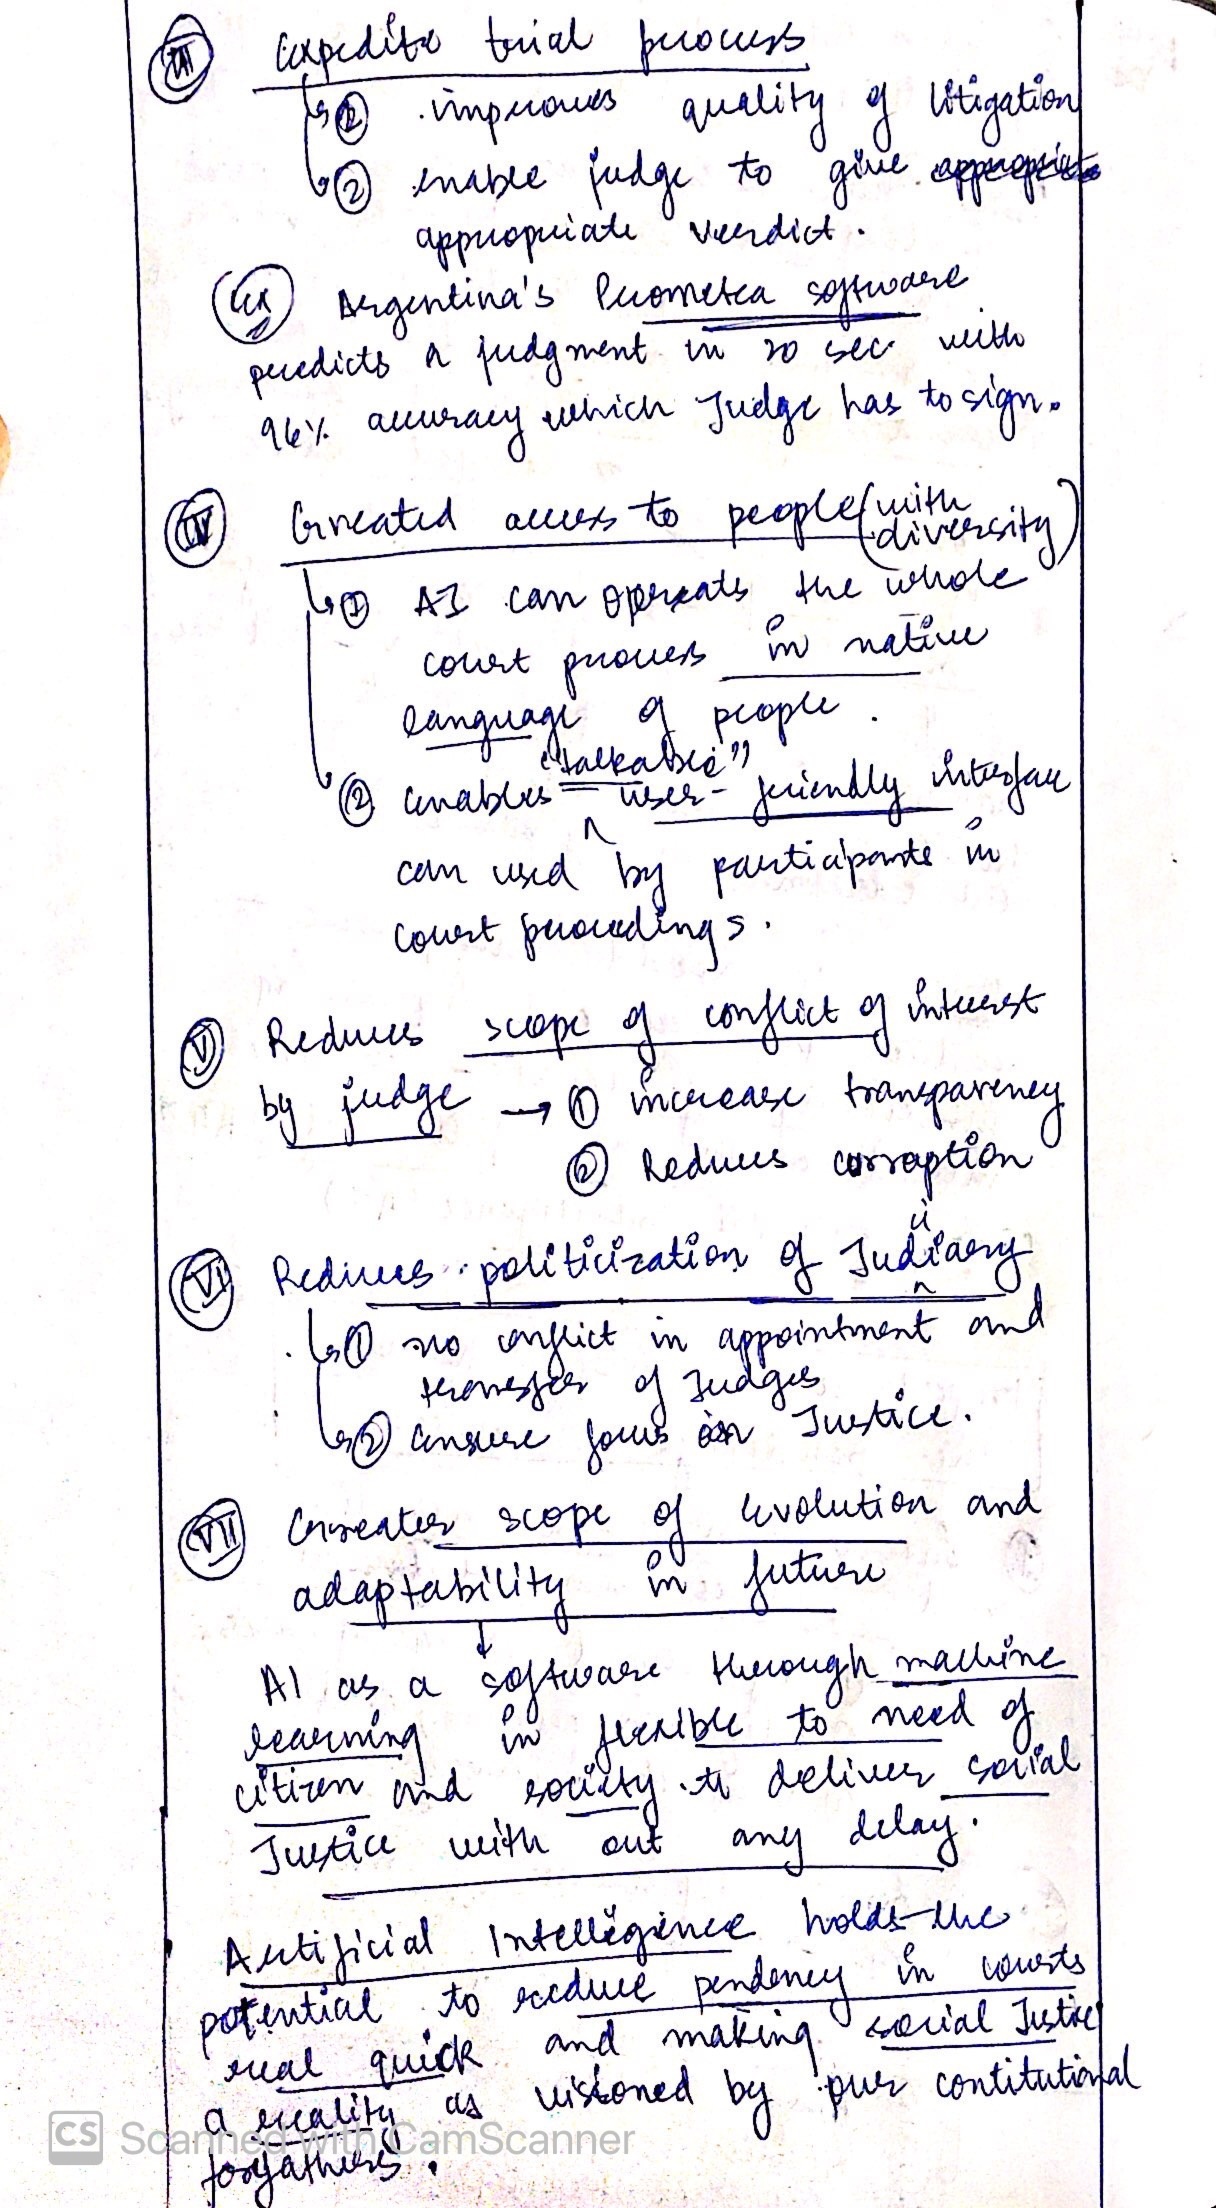 III Expedite trial process
↳ ① improves quality of litigation
↳ ② enable judge to give appropriate
appropriate verdict.
Ex Argentina's Prometea software
predicts a judgment in 20 sec with
96% accuracy which Judge has to sign.
IV Greated access to people (with
diversity)
↳ ① AI can operate the whole
court process in native
language of people.
"talkable"
↳ ② enables user-friendly interface
can used by participants in
court procedings.
V Reduces scope of conflict of interest
by judge → ① increase transparency
② Reduces corraption
VI Reduces politicization of Judiciary
↳ ① no conflict in appointment and
transfer of Judges
↳ ② ensure focus on Justice.
VII Greater scope of evolution and
adaptability in future
↓
AI as a software through machine
learning in flexible to need of
citizen and society to deliver social
Justice with out any delay.
Artificial Intelligence holds the
potential to reduce pendency in courts
real quick and making social Justice
a reality as visioned by our contitutional
forfathers.
CS Scanned with CamScanner